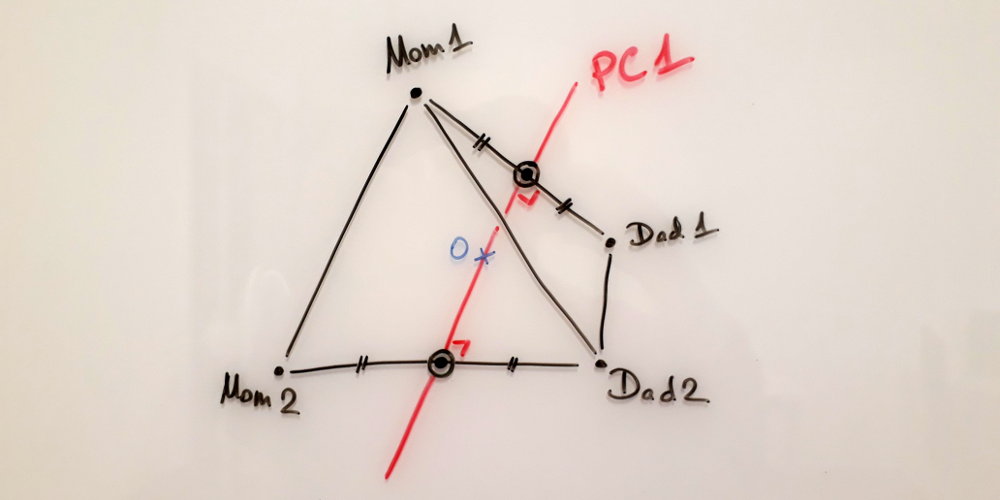 Mom 1
PC 1
Dad 1
O
Mom 2
Dad 2